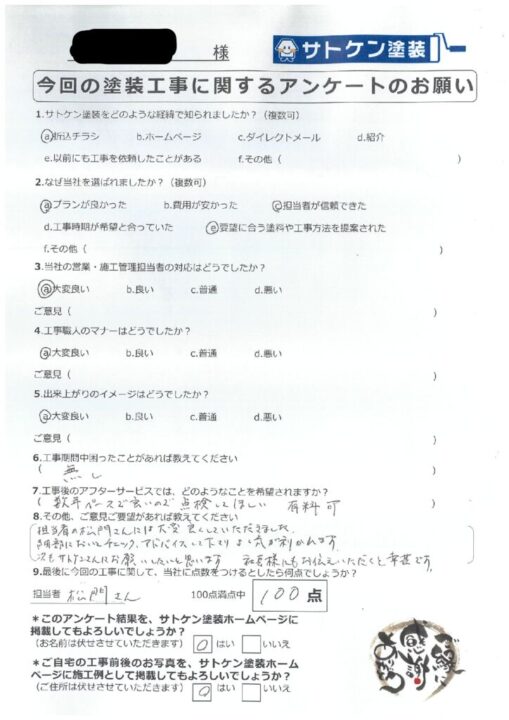 様
サトケン塗装
今回の塗装工事に関するアンケートのお願い
1.サトケン塗装をどのような経緯で知られましたか？（複数可）
a.折込チラシ b.ホームページ c.ダイレクトメール d.紹介
e.以前にも工事を依頼したことがある f.その他（ ）
2.なぜ当社を選ばれましたか？（複数可）
a.プランが良かった b.費用が安かった c.担当者が信頼できた
d.工事時期が希望と合っていた e.要望に合う塗料や工事方法を提案された
f.その他（ ）
3.当社の営業・施工管理担当者の対応はどうでしたか？
a.大変良い b.良い c.普通 d.悪い
ご意見（ ）
4.工事職人のマナーはどうでしたか？
a.大変良い b.良い c.普通 d.悪い
ご意見（ ）
5.出来上がりのイメージはどうでしたか？
a.大変良い b.良い c.普通 d.悪い
ご意見（ ）
6.工事期間中困ったことがあれば教えてください
（ 無し ）
7.工事後のアフターサービスでは、どのようなことを希望されますか？
（ 数年ペースで良いので点検してほしい 有料可 ）
8.その他、ご意見ご要望があれば教えてください
担当者の松門さんには大変良くしていただきました。
細部においてチェック、アドバイスして下り よく気が利かれます。
次もサトケンさんにお願いしたいと思います 社長様にもお伝えいただくと幸甚です。
9.最後に今回の工事に関して、当社に点数をつけるとしたら何点でしょうか？
担当者 松門さん 100点満点中 100 点
＊このアンケート結果を、サトケン塗装ホームページに
掲載してもよろしいでしょうか？
（お名前は伏せさせていただきます） ○ はい いいえ
＊ご自宅の工事前後のお写真を、サトケン塗装ホーム
ページに施工例として掲載してもよろしいでしょうか？
（ご住所は伏せさせていただきます） ○ はい いいえ
ご縁に
感謝
ありがとう